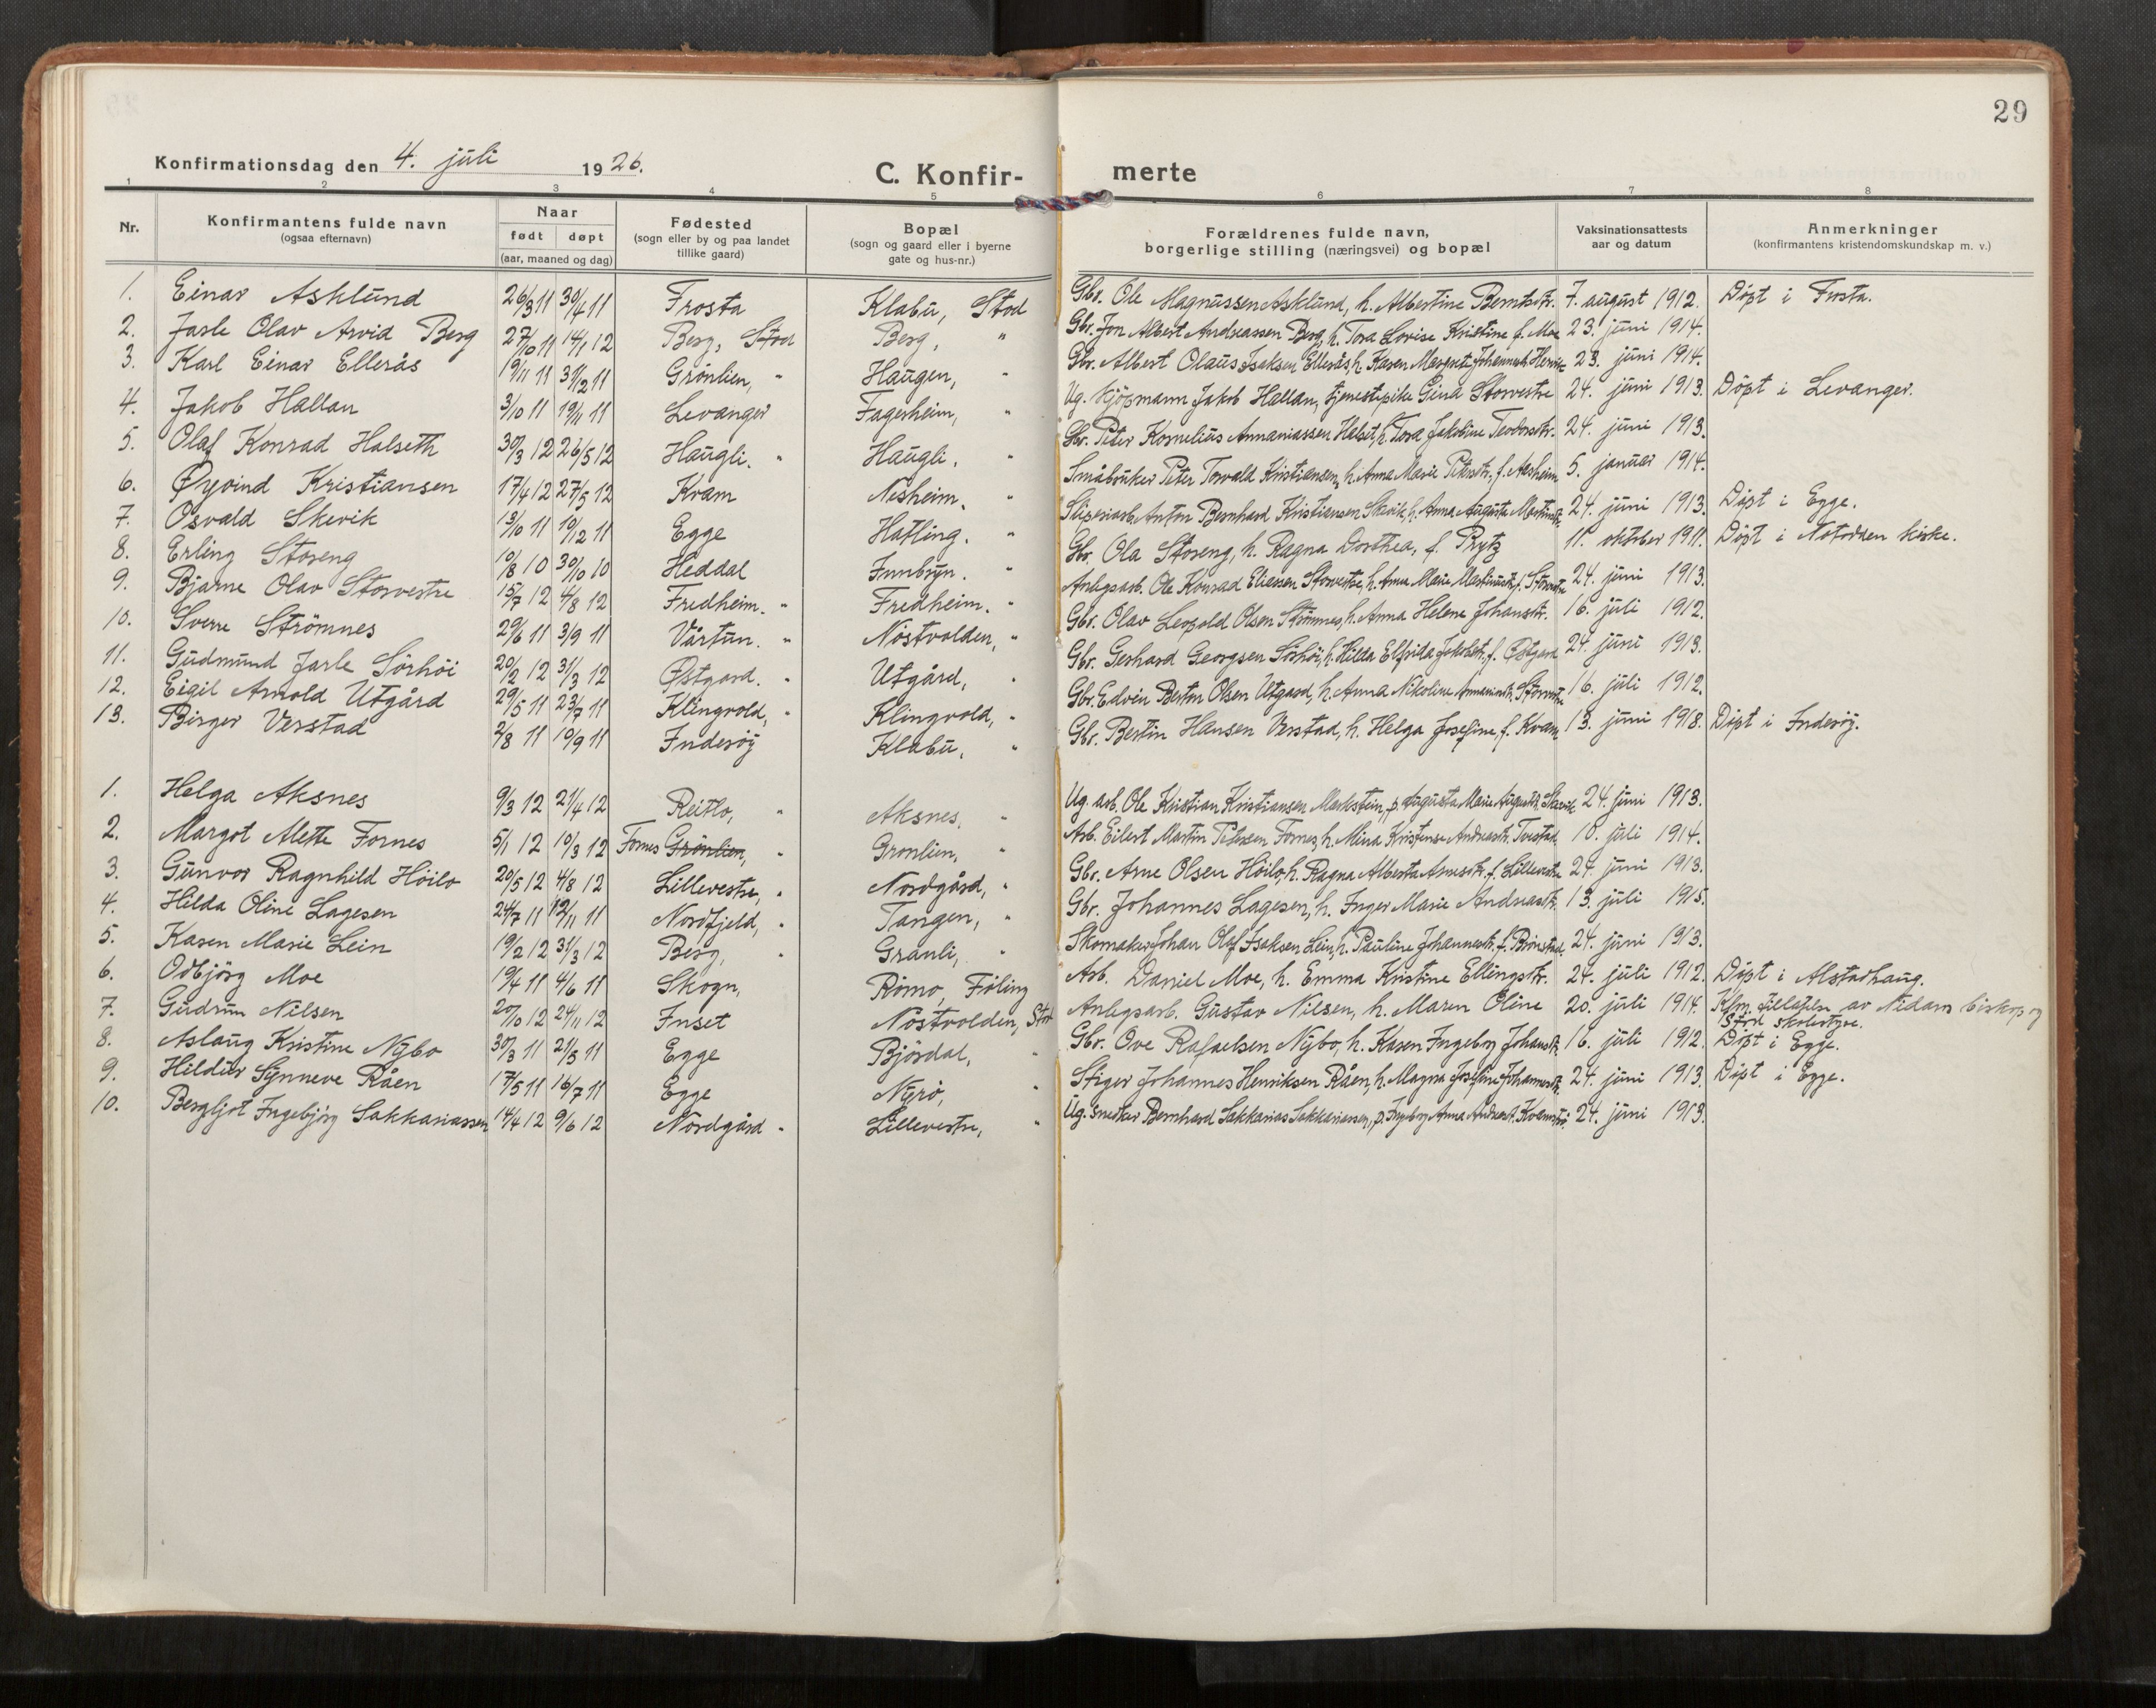 29
Konfirmationsdag den 4. juli 1926.
C. Konfir- merte
1 2 3 4 5 6 7 8
Nr. | Konfirmantens fulde navn (ogsaa efternavn) | Naar født døpt (aar, maaned og dag) | Fødested (sogn eller by og paa landet tillike gaard) | Bopæl (sogn og gaard eller i byerne gate og hus-nr.) | Forældrenes fulde navn, borgerlige stilling (næringsvei) og bopæl | Vaksinationsattests aar og datum | Anmerkninger (konfirmantens kristendomskundskap m. v.)
1. Einar Asklund 26/3 11 30/4 11 Frosta Klabu, Stod Gbr. Ole Magnussen Asklund, h. Albertine Berntsdtr. 7. august 1912. Döpt i Frosta.
2. Jarle Olav Arvid Berg 27/10 11 14/1 12 Berg, Stod Berg, " Gbr. Jon Albert Andreassen Berg, h. Tora Lovise Kristine f. Moe 23. juni 1914.
3. Karl Einar Ellerås 19/11 11 31/12 11 Grönlien, " Haugen, " Gbr. Albert Olaus Isaksen Ellerås, h. Karen Margrete Johannesdt. 23. juni 1914.
4. Jakob Hallan 3/10 11 19/11 11 Levanger Fagerheim, " Ug. Kjöpmann Jakob Hallan, tjenestepike Gina Storvestre 24. juni 1913. Döpt i Levanger.
5. Olaf Konrad Halseth 30/3 12 26/5 12 Haugli. " Haugli. " Gbr. Peter Kornelius Annaniassen Halset, h. Tora Jakobine Teodorsdtr. 24. juni 1913.
6. Øyvind Kristiansen 17/4 12 27/5 12 Kvam Nesheim. " Småbruker Peter Torvald Kristiansen, h. Anna Marie Petersdtr. f. Aasheim 5. januar 1914.
7. Osvald Skevik 13/10 11 10/12 11 Egge Hatling. " Sliperiarb. Anton Bernhard Kristiansen Skevik, h. Anna Augusta Martinsdt. 24. juni 1913. Döpt i Egge.
8. Erling Storeng 10/8 10 30/10 10 Heddal Innbryn. " Gbr. Ola Storeng, h. Ragna Dorthea, f. Prytz 11. oktober 1911. Döpt i Notodden kirke.
9. Bjarne Olav Storvestre 15/7 12 4/8 12 Fredheim. " Fredheim. " Anlegsarb. Ole Konrad Eliassen Storvestre, h. Anna Marie Martinusdt. f. Storvestre 24. juni 1913.
10. Sverre Strömnes 29/6 11 3/9 11 Vårtun. " Nöstvolden, " Gbr. Olav Leopold Olsen Strömnes, h. Anna Helene Johansdtr. 16. juli 1912.
11. Gudmund Jarle Sörhöi 20/2 12 31/3 12 Østgard. " Utgård, " Gbr. Gerhard Georgsen Sörhöi, h. Hilda Elfrida Jakobdtr. f. Østgard 24. juni 1913.
12. Eigil Arnold Utgård 29/5 11 23/7 11 Klingvold, " Klingvold, " Gbr. Edvin Berton Olsen Utgaard, h. Anna Nikoline Annaniasdt. Storvestre 16. juli 1912.
13. Birger Verstad 2/8 11 10/9 11 Inderöy Klabu, " Gbr. Bertin Hansen Verstad, h. Helga Josefine, f. Kvam 13. juni 1918. Döpt i Inderöy.
1. Helga Aksnes 9/3 12 21/4 12 Reitlo, " Aksnes, " Ug. arb. Ole Kristian Kristiansen Merkstein, p. Augusta Marie Augustdt. Skevik 24. juni 1913.
2. Margot Alette Fornes 5/1 12 10/3 12 Fornes Grönlien, " Gronlien, " Arb. Eilert Martin Petersen Fornes, h. Mina Kristense Andreasdt. Tverstad 10. juli 1914.
3. Gunvor Ragnhild Höilo 20/5 12 4/8 12 Lillevestre, " Nordgård, " Gbr. Arne Olsen Höilo, h. Ragna Alberta Arnesdtr. f. Lillevestre 24. juni 1913.
4. Hilda Oline Lagesen 24/7 11 12/11 11 Nordfjeld, " Tangen, " Gbr. Johannes Lagesen, h. Inger Marie Andreasdtr. 13. juli 1915.
5. Karen Marie Lein 19/2 12 31/3 12 Berg, " Granli, " Skomaker Johan Olaf Isaksen Lein, h. Pauline Johannesdtr. f. Brönstad. 24. juni 1913.
6. Odbjörg Moe 19/4 11 4/6 11 Skogn, Römo, Föling Arb. Daniel Moe, h. Emma Kristine Ellingsdtr. 24. juli 1912. Döpt i Alstadhaug.
7. Gudrun Nilsen 20/10 12 24/11 12 Inset Nöstvolden, Stod Anlegsarb. Gustav Nilsen, h. Maren Oline 20. juli 1914. Kfm. tillatelse av Nidaros biskop og
Stod skolestyre.
8. Aslaug Kristine Nybo 30/3 11 21/5 11 Egge Björdal, " Gbr. Ove Rafaelsen Nybo, h. Karen Ingeborg Johansdt. 16. juli 1912. Döpt i Egge.
9. Hildur Synneve Råen 17/5 11 16/7 11 Egge Nyrö, " Stiger Johannes Henriksen Råen, h. Magna Josefine Johannesdt. 24. juni 1913. Döpt i Egge.
10. Bergljot Ingebjörg Sakkariassen 14/4 12 9/6 12 Nordgård " Lillevestre, " Ug. snekker Bernhard Sakkarias Sakkariassen, p. Ingeborg Anna Andreasd. 24. juni 1913.